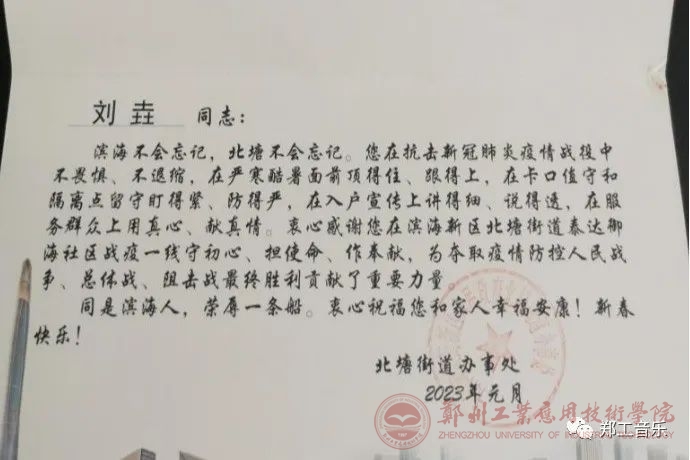 刘垚 同志：
滨海不会忘记，北塘不会忘记。您在抗击新冠肺炎疫情战役中
不畏惧、不退缩，在严寒酷暑面前顶得住、跟得上，在卡口值守和
隔离点留守盯得紧、防得严，在入户宣传上讲得细、说得透，在服
务群众上用真心、献真情。衷心感谢您在滨海新区北塘街道泰达御
海社区战疫一线守初心、担使命、作奉献，为夺取疫情防控人民战
争、总体战、阻击战最终胜利贡献了重要力量。
同是滨海人，荣辱一条船。衷心祝福您和家人幸福安康！新春
快乐！
北塘街道办事处
2023年元月
鄭州工業應用技術學院
ZHENGZHOU UNIVERSITY OF INDUSTRIAL TECHNOLOGY
郑工音乐